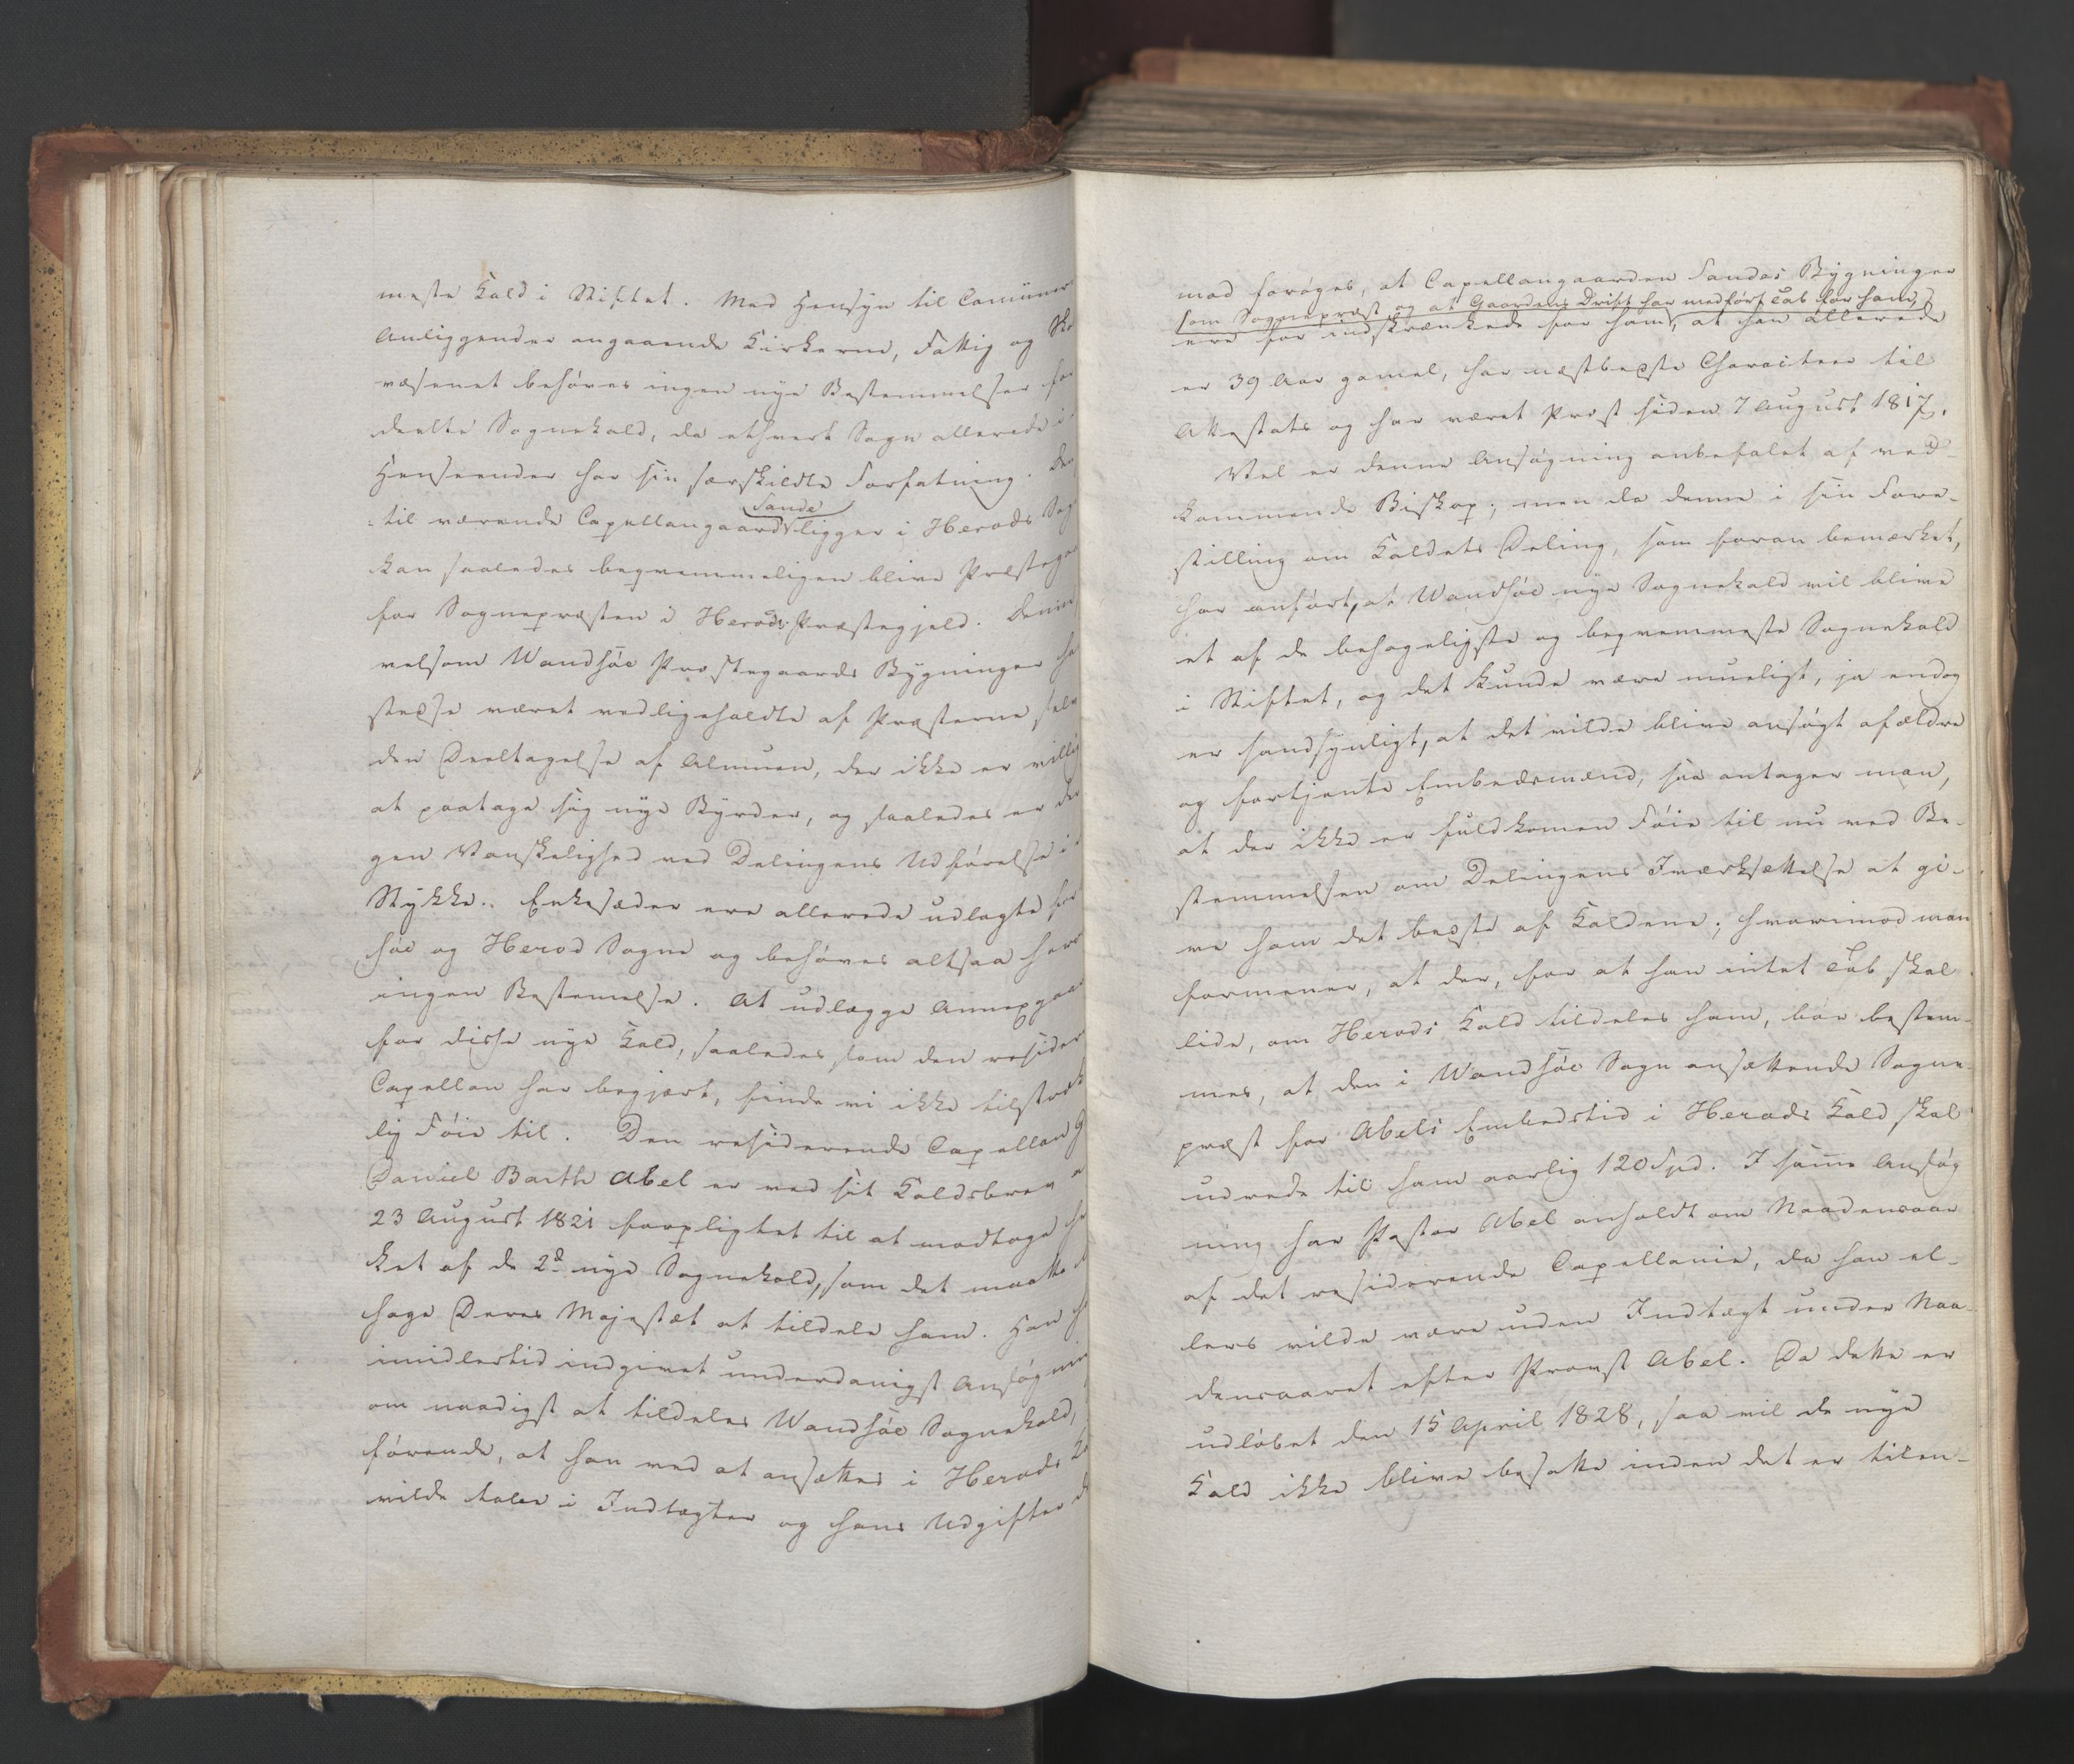 meste Kald i Stiftet. Med Hensyn til Comüner
Anliggender angaaende Kirkerne, Fattig og Sko
væsenet behøves ingen nye Bestemmelser for
deelte Sognekald, da ethvert Sogn allerede i
Henseender har sin særskildte Forfatning. Den
Sande
til værende Capellangaard ligger i Herods Sog
kan saaledes beqvemmeligen blive Præstega
for Sognepræsten i Herods Præstegjeld. Denne
velsom Wandsøe Præstegaards Bygninger ha
stedse været vedligeholdte af Præsterne selv
den Deeltagelse af Almuen, der ikke er villig
at paatage sig nye Byrder, og saaledes er der
gen Vanskelighed ved Delingens Udførelse i
Stykke. Enkesæder ere allerede udlagte for
søe og Herod Sogne og behøves altsaa herom
ingen Bestemelse. At udlægge Annexgaar
for disse nye Kald, saaledes som den resider
Capellan har begjært, finde vi ikke tilstræk
lig Føie til. Den residerende Capellan
Daniel Barth Abel er ved sit Kaldsbrev a
23 August 1821 forpligtet til at modtage hv
ket af de 2de nye Sognekald, som det maatte
hage Deres Majestæt at tildele ham. Han ha
imidlertid indgivet underdanigst Ansøgnin
om naadigst at tildeles Wandsøe Sognekald,
førende, at han ved at ansættes i Herods
vilde tabe i Indtægter og hans Udgifter d
mod forøges, at Capellangaarden Sandes Bygninger
som Sognepræst og at Gaardens Drift har medført Tab for ham,
ere for indskrænkede for ham, at han allerede
er 39 Aar gamel, har næstbedste Charakteer til
Attestats og har været Præst siden 7 August 1817.
Vel er denne Ansøgning anbefalet af ved-
kommende Biskop; men da denne i sin Fore-
stilling om Kaldets Deling, som foran bemærket,
har anført, at Wandsøe nye Sognekald vil blive
et af de behageligste og beqvemmeste Sognekald
i Stiftet, og det kunde være mueligt, ja endog
er sandsynligt, at det vilde blive ansøgt af ældre
og fortjente Embedsmænd, saa antager man,
at der ikke er fuldkomen Føie til nu ved Be-
stemmelsen om Delingens Iværksættelse at gi-
ve ham det bedste af Kaldene; hvorimod man
formener, at der, for at han intet Tab skal
lide, om Herods Kald tildeles ham, bør bestem-
mes, at den i Wandsøe Sogn ansættende Sogne-
præst for Abels Embedstid i Herods Kald skal
udrede til ham aarlig 120 Spd. I samme Ansøg
ning har Pastor Abel anholdt om Naadensaar
af det residerende Capellanie, da han el-
lers vilde være uden Indtægt under Naa-
densaaret efter Provst Abel. Da dette er
udløbet den 15 April 1828, saa vil de nye
Kald ikke blive besatte inden det er tilen-